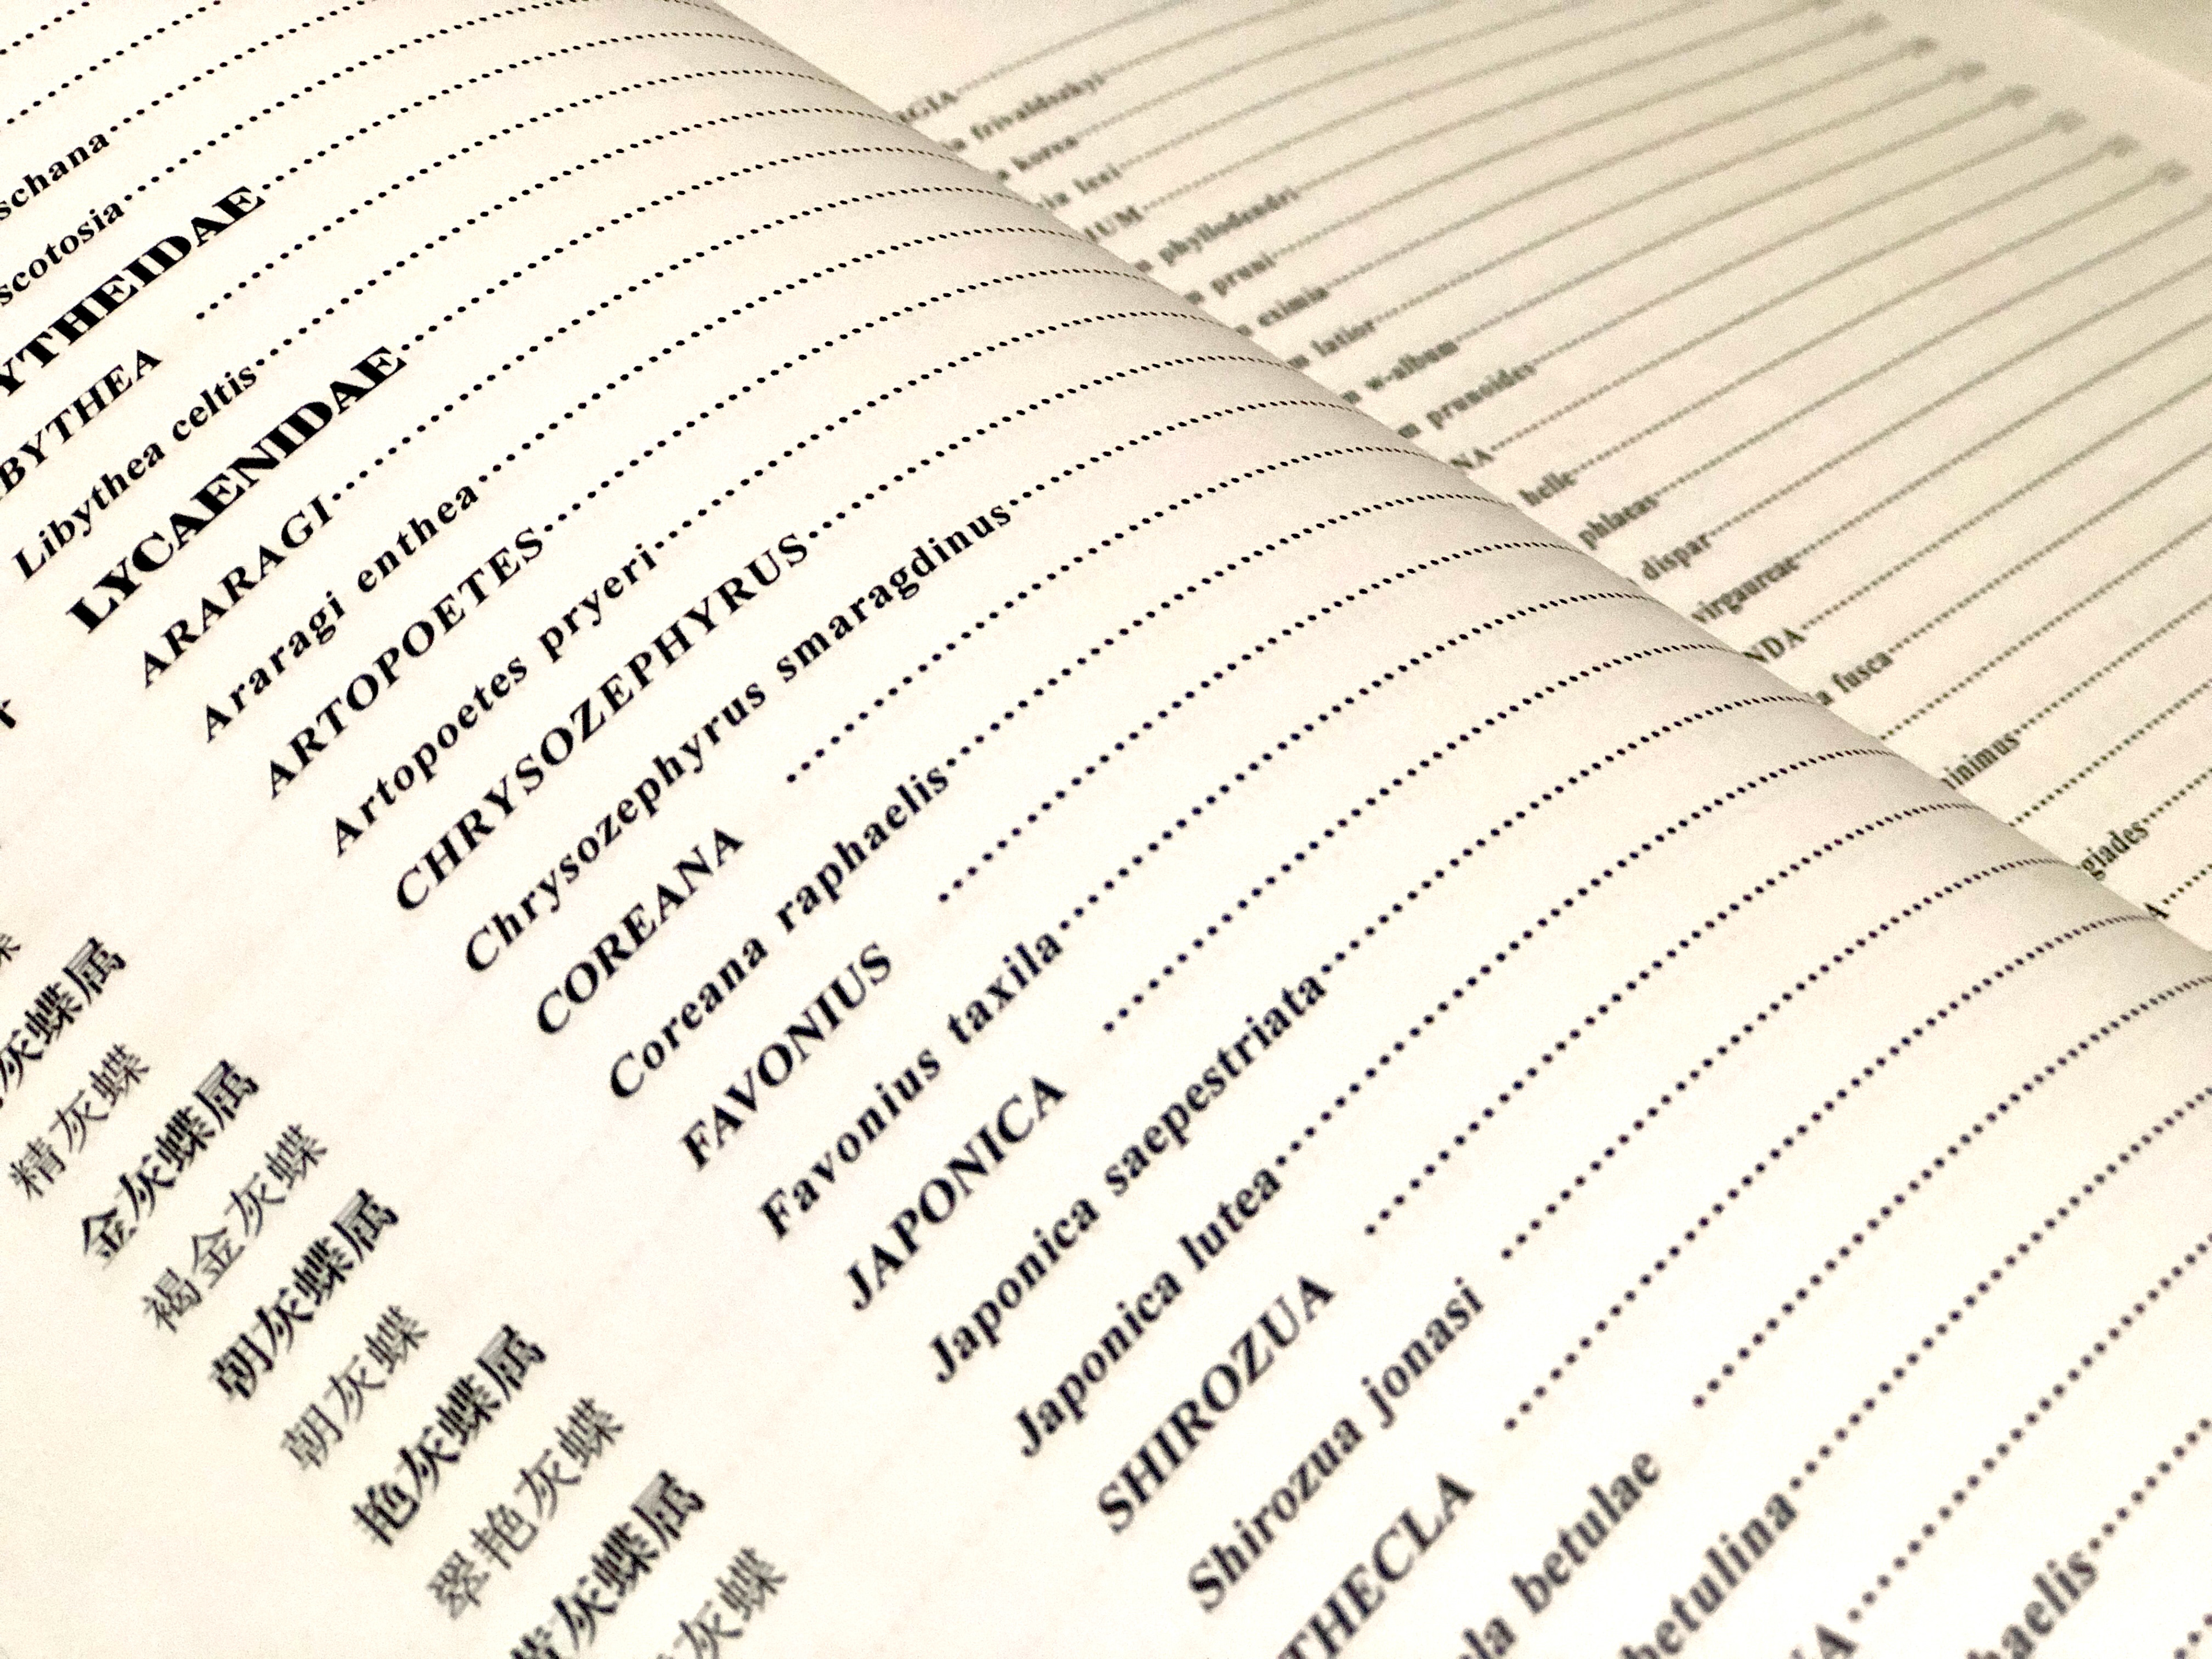 schana
scotosia
YTHEIDAE
BYTHEA
Libythea celtis
LYCAENIDAE
ARARAGI
Araragi enthea
ARTOPOETES
Artopoetes pryeri
CHRYSOZEPHYRUS
Chrysozephyrus smaragdinus
COREANA
Coreana raphaelis
FAVONIUS
Favonius taxila
JAPONICA
Japonica saepestriata
Japonica lutea
SHIROZUA
Shirozua jonasi
THECLA
la betulae
betulina
A
haelis
灰蝶属
精灰蝶
金灰蝶属
褐金灰蝶
朝灰蝶属
朝灰蝶
艳灰蝶属
翠艳灰蝶
黄灰蝶属
灰蝶
GIA
frivaldszkyi
korea
leei
IUM
phyllodendri
pruni
eximia
latior
w-album
prunoides
NA
helle
phlaeas
dispar
virgaureae
NDA
a fusca
minimus
giades
A